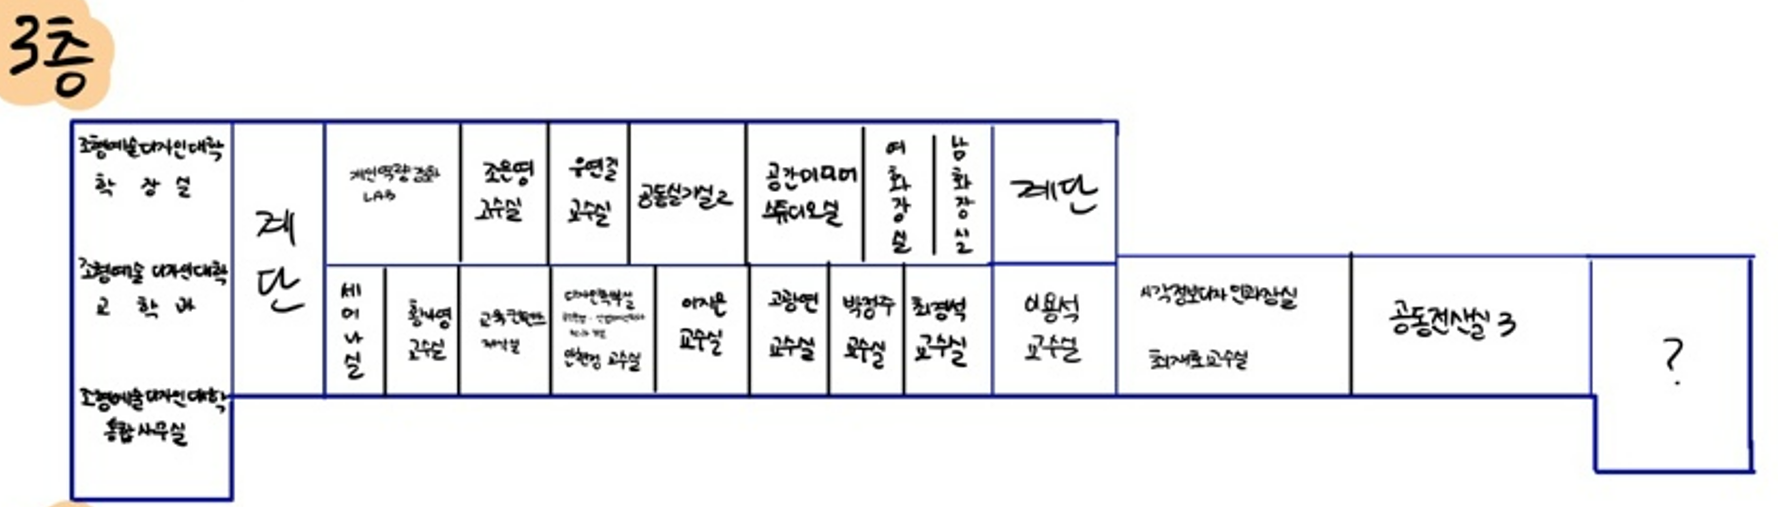 3층
조형예술디자인대학
학 장 실
조형예술 디자인대학
교 학 과
조형예술디자인대학
통합사무실
계
단
개인역량강화
LAB
조은영
교수실
우연길
교수실
공동실기실2
공간미디어
스튜디오실
여
화
장
실
남
화
장
실
계단
세
미
나
실
황나영
교수실
교육컨텐츠
제작실
디자인학부실
안현정 교수실
이지은
교수실
고광연
교수실
박정주
교수실
최경석
교수실
이용석
교수실
시각정보디자인과장실
최재호교수실
공동전산실 3
?